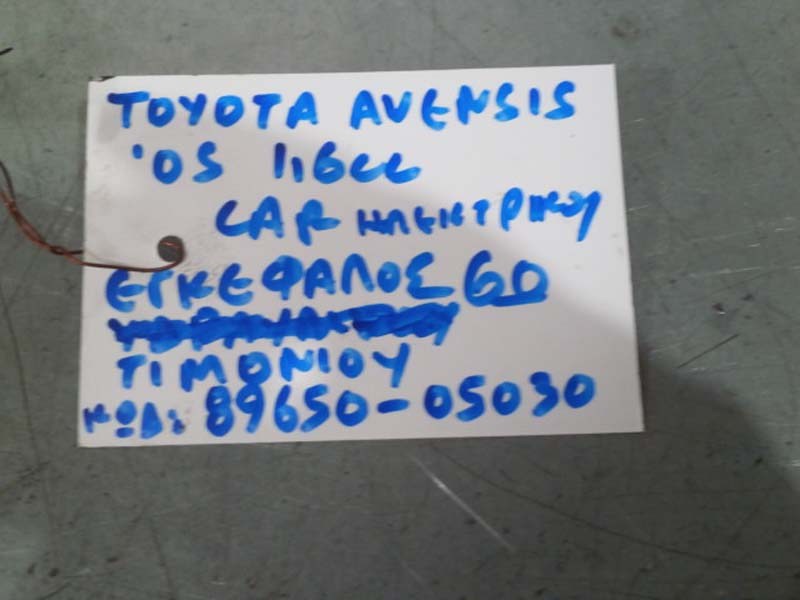 TOYOTA AVENSIS
'05 1,6cc
CAR ΗΛΕΚΤΡΙΚΟΥ
ΕΓΚΕΦΑΛΟΣ 60
ΤΙΜΟΝΙΟΥ
ΚΩΔ: 89650-05030